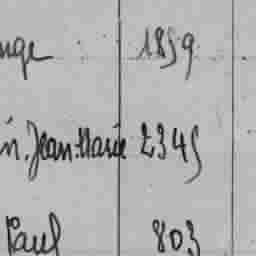 nge 1859
n. Jean-Marie 2345
Paul 803